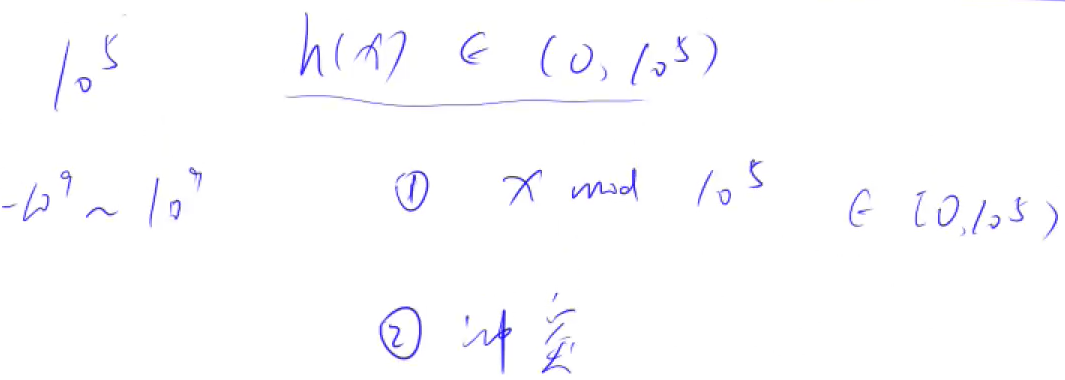 10^5 h(x) ∈ (0, 10^5)
-10^9 ~ 10^9 ① x mod 10^5 ∈ [0, 10^5)
② 冲突